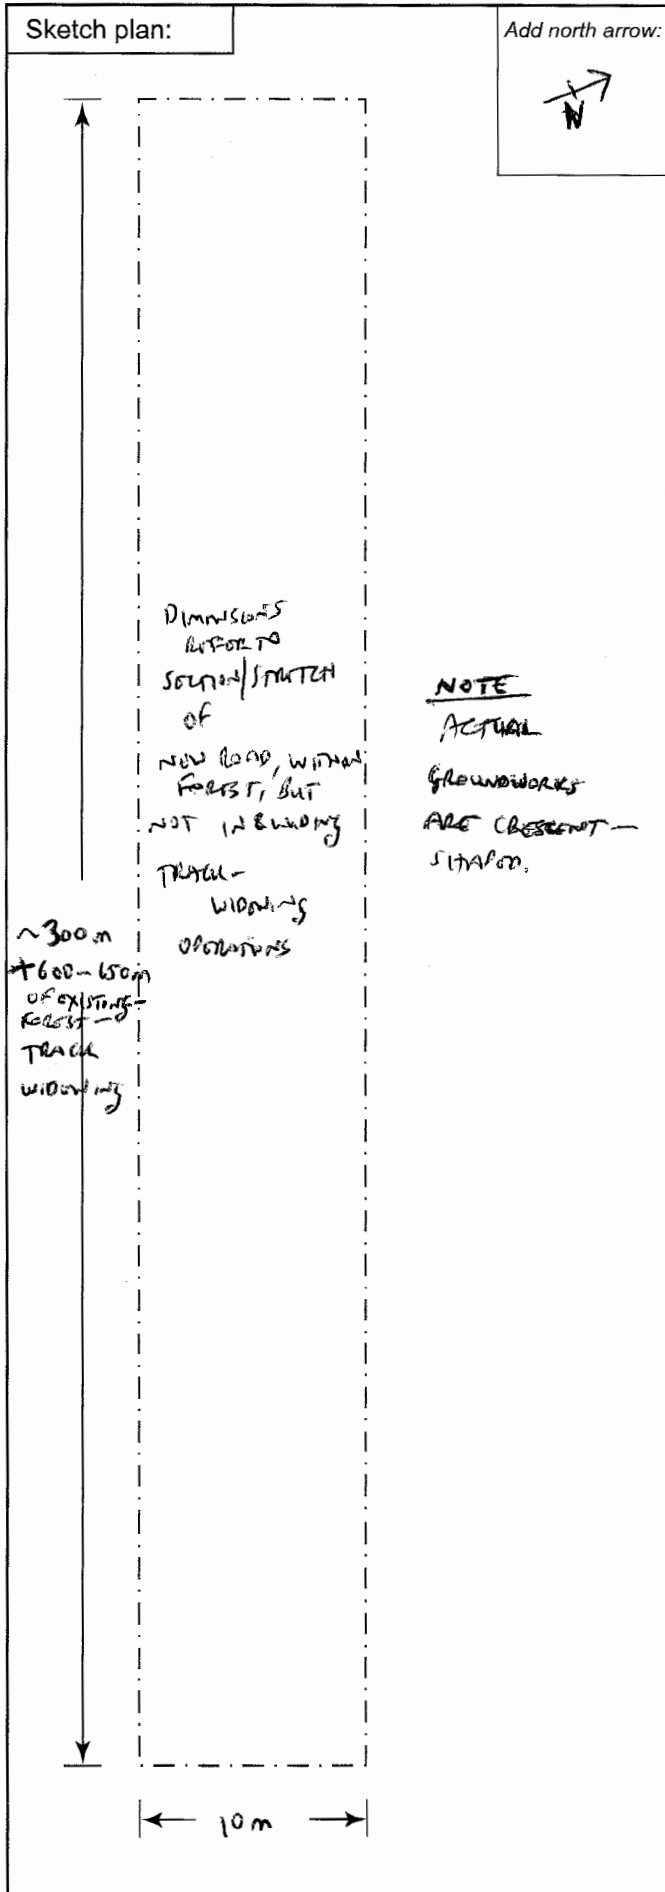 Sketch plan:
Add north arrow:
N
DIMENSIONS
REFER TO
SECTION/STRETCH
OF
NEW ROAD, WITHIN
FOREST, BUT
NOT INCLUDING
TRACK-
WIDENING
OPERATIONS
NOTE
ACTUAL
GROUNDWORKS
ARE CRESCENT-
SHAPED.
~300m
+600-650m
OF EXISTING-
FOREST-
TRACK
WIDENING
10m